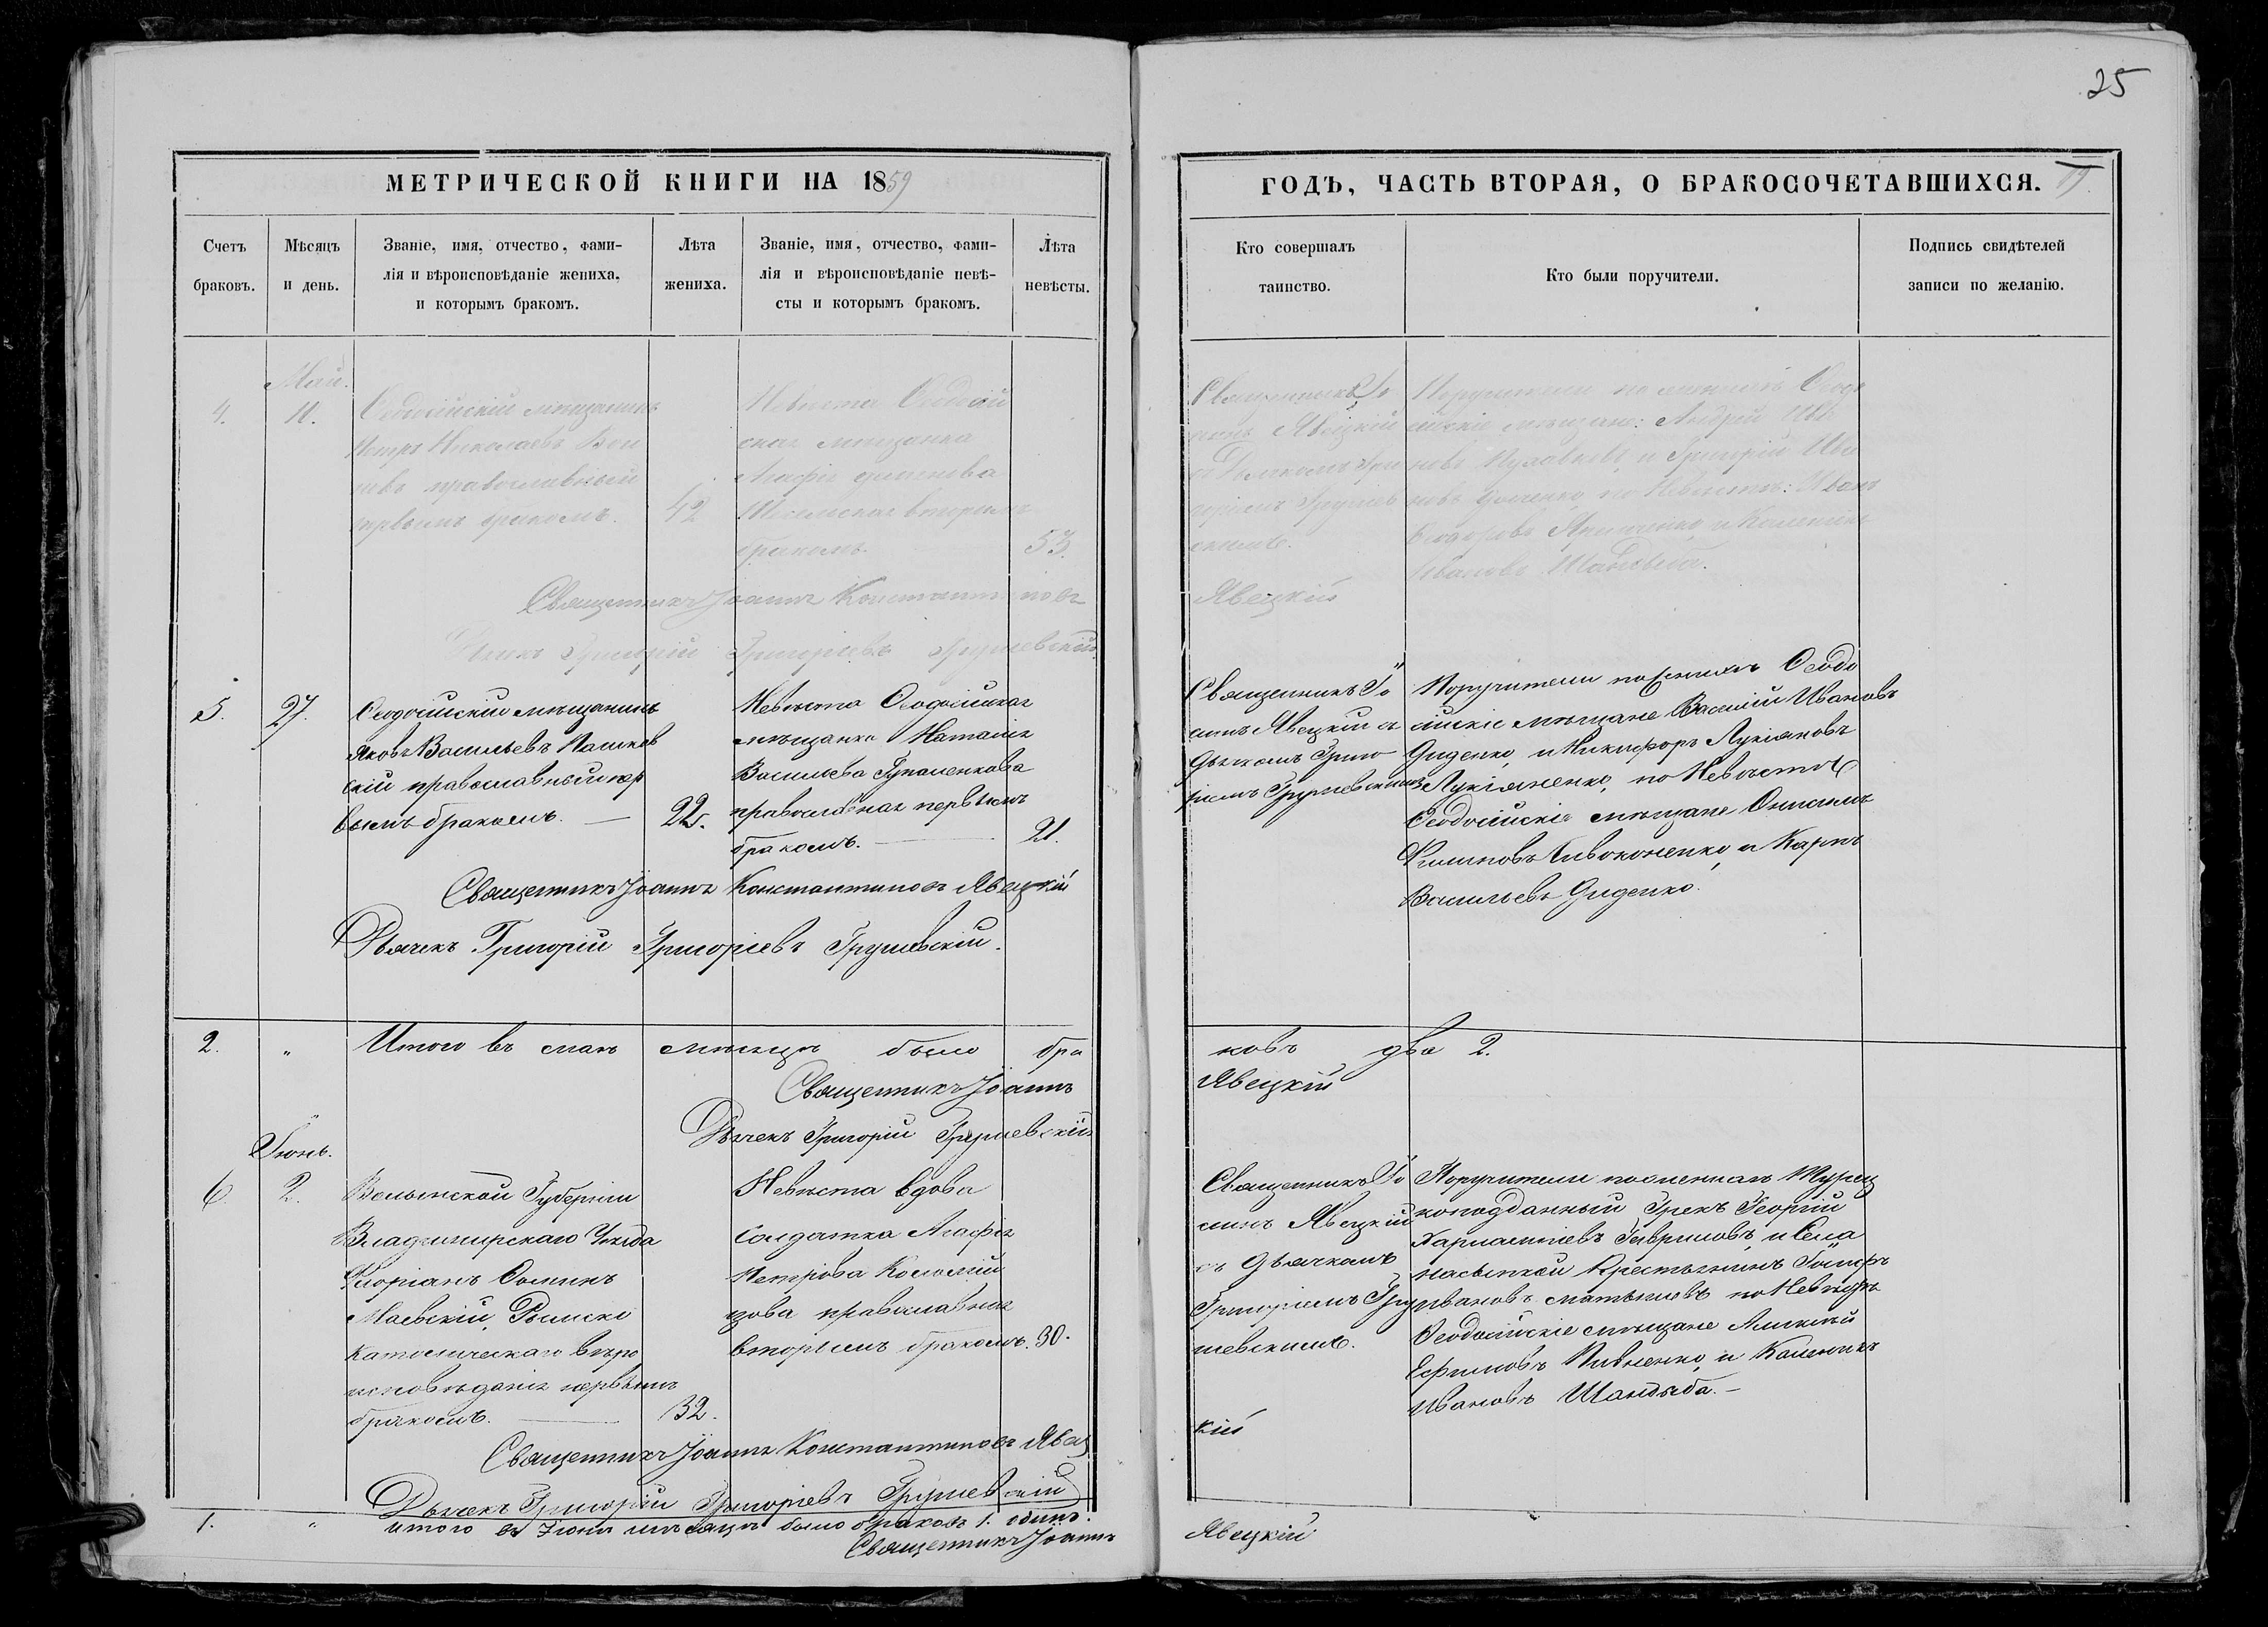 25
МЕТРИЧЕСКОЙ КНИГИ НА 1859
Счетъ браковъ.
Мѣсяцъ и день.
Званіе, имя, отчество, фами-
лія и вѣроисповѣданіе жениха,
и которымъ бракомъ.
Лѣта жениха.
Званіе, имя, отчество, фами-
лія и вѣроисповѣданіе невѣ-
сты и которымъ бракомъ.
Лѣта невѣсты.
ГОДЪ, ЧАСТЬ ВТОРАЯ, О БРАКОСОЧЕТАВШИХСЯ.
Кто совершалъ
таинство.
Кто были поручители.
Подпись свидѣтелей
записи по желанію.
Май.
4.
11.
Ѳеодосійскій мѣщанинъ
Петръ Николаевъ
православный
первымъ бракомъ.
42
Невѣста Ѳеодосій
ская мѣщанка
Агафія
вторымъ
бракомъ.
53.
Священникъ Іо
аннъ Явецкій
съ Дьячкомъ Гри
горіемъ Грушев
скимъ.
Поручители по женихѣ Ѳеодо
сійскіе мѣщане: Андрей Ива
новъ и Григорій Ива
новъ по Невѣстѣ: Иванъ
Ѳедоровъ и Каленикъ
Ивановъ Шандыба.
Священникъ Іоаннъ Константиновъ
Явецкій
Дьячекъ Григорій Григоріевъ Грушевскій
5.
27.
Ѳеодосійскій мѣщанинъ
Яковъ Васильевъ Пашков
скій православный пер
вымъ бракомъ.
22.
Невѣста Ѳеодосійская
мѣщанка Наталія
Васильева
православная первымъ
бракомъ.
21.
Священникъ Іо
аннъ Явецкій съ
Дьячкомъ Григо
ріемъ Грушевскимъ
Поручители по женихѣ Ѳеодо
сійскіе мѣщане Василій Ивановъ
Диденко, и Никифоръ Лукіяновъ
Лукіяненко, по Невѣстѣ
Ѳеодосійскіе мѣщане Онисимъ
Филиповъ Сивоконенко, и Карпъ
Васильевъ Диденко.
Священникъ Іоаннъ Константиновъ Явецкій
Дьячекъ Григорій Григоріевъ Грушевскій.
2.
"
Итого въ маѣ мѣсяцѣ было бра
ковъ два 2.
Священникъ Іоаннъ
Явецкій
Дьячекъ Григорій Грушевскій
Іюнь.
6.
2.
Волынской Губерніи
Владимирскаго Уѣзда
Флоріанъ Фоминъ
Маевскій, Римско
католическаго вѣро
исповѣданія первымъ
бракомъ.
32.
Невѣста вдова
Солдатка Агафія
Петрова Коломій
цова православная
вторымъ бракомъ.
30.
Священникъ Іо
аннъ Явецкій
съ Дьячкомъ
Григоріемъ Гру
шевскимъ.
Поручители по женихѣ Турец
коподданный Грекъ Георгій
Харлампіевъ Гавриловъ, и Села
Насыпкой Крестьянинъ Іосифъ
Ивановъ по Невѣстѣ
Ѳеодосійскіе мѣщане Алексѣй
Ефимовъ Пивненко, и Каленикъ
Ивановъ Шандыба.
Священникъ Іоаннъ Константиновъ Явец
кій
Дьячекъ Григорій Григоріевъ Грушевскій
1.
"
итого въ Іюнѣ мѣсяцѣ было браковъ 1. одинъ.
Священникъ Іоаннъ
Явецкій